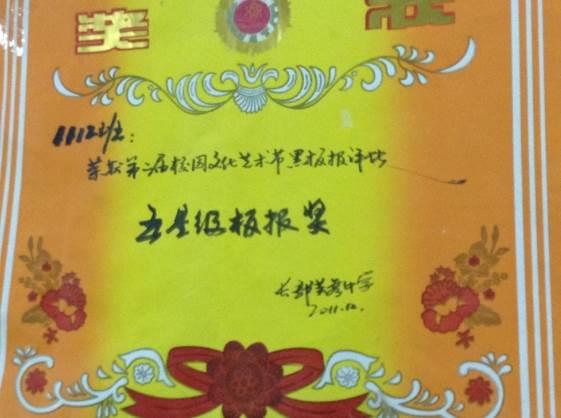 奖 状
1112班：
荣获第六届校园文化艺术节黑板报评比
五星级板报奖
长郡芙蓉中学
2011.12.